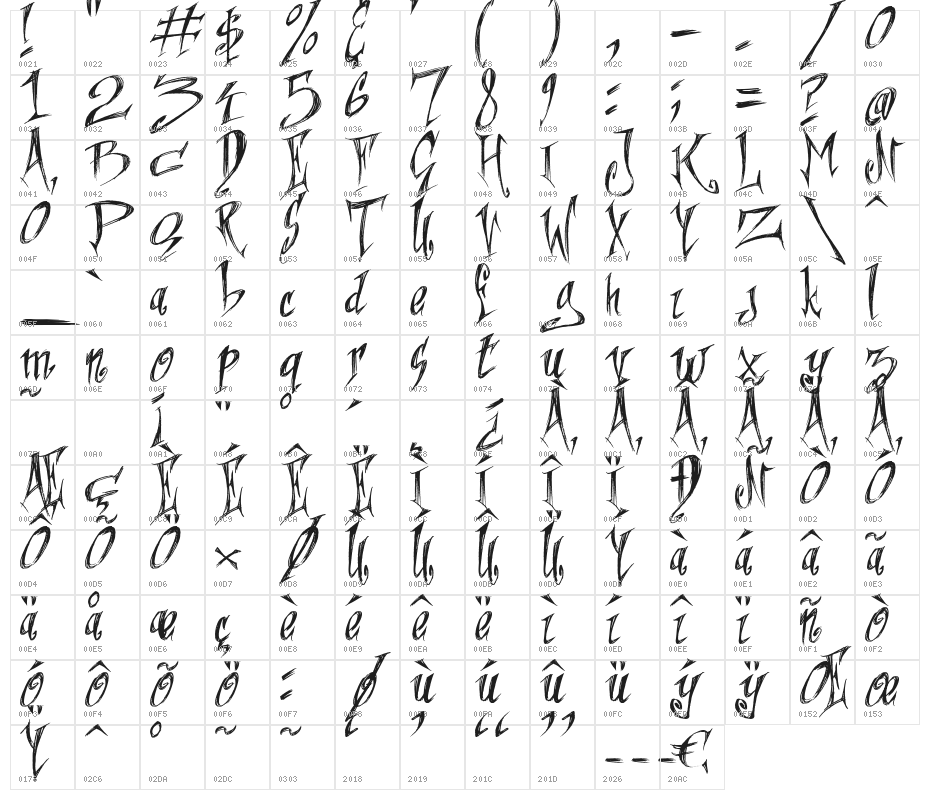 ! " # $ % & ' ( ) , - . / 0
0021 0022 0023 0024 0025 0026 0027 0028 0029 002C 002D 002E 002F 0030
1 2 3 4 5 6 7 8 9 : ; = ? @
0031 0032 0033 0034 0035 0036 0037 0038 0039 003A 003B 003D 003F 0040
A B C D E F G H I J K L M N
0041 0042 0043 0044 0045 0046 0047 0048 0049 004A 004B 004C 004D 004E
O P Q R S T U V W X Y Z \ ^
004F 0050 0051 0052 0053 0054 0055 0056 0057 0058 0059 005A 005C 005E
_ ` a b c d e f g h i j k l
005F 0060 0061 0062 0063 0064 0065 0066 0067 0068 0069 006A 006B 006C
m n o p q r s t u v w x y z
006D 006E 006F 0070 0071 0072 0073 0074 0075 0076 0077 0078 0079 007A
~ ¡ ¨ ° ´ ¸ ¿ À Á Â Ã Ä Å
007E 00A0 00A1 00A8 00B0 00B4 00B8 00BF 00C0 00C1 00C2 00C3 00C4 00C5
Æ Ç È É Ê Ë Ì Í Î Ï Ð Ñ Ò Ó
00C6 00C7 00C8 00C9 00CA 00CB 00CC 00CD 00CE 00CF 00D0 00D1 00D2 00D3
Ô Õ Ö × Ø Ù Ú Û Ü Ý à á â ã
00D4 00D5 00D6 00D7 00D8 00D9 00DA 00DB 00DC 00DD 00E0 00E1 00E2 00E3
ä å æ ç è é ê ë ì í î ï ñ ò
00E4 00E5 00E6 00E7 00E8 00E9 00EA 00EB 00EC 00ED 00EE 00EF 00F1 00F2
ó ô õ ö ÷ ø ù ú û ü ý ÿ Œ œ
00F3 00F4 00F5 00F6 00F7 00F8 00F9 00FA 00FB 00FC 00FD 00FF 0152 0153
Ÿ ˆ ˚ ˜ ~ ‘ ’ “ ” … €
0178 02C6 02DA 02DC 0303 2018 2019 201C 201D 2026 20AC